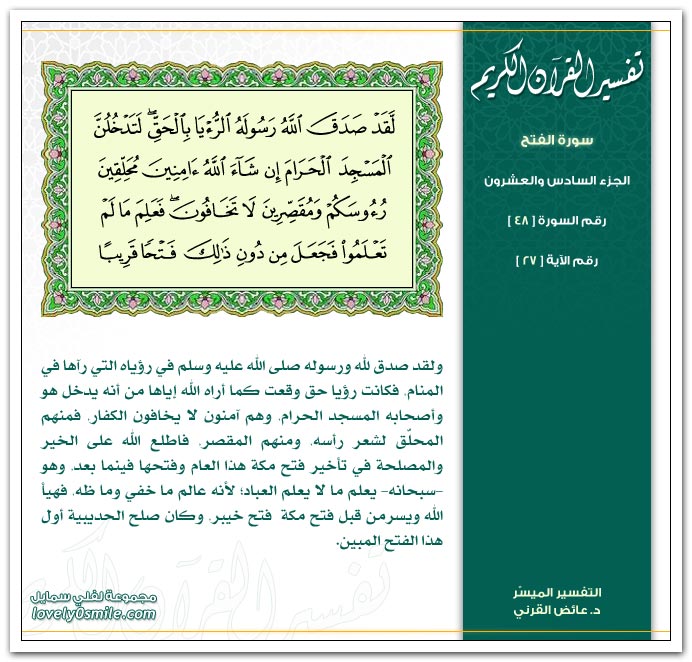 تفسير القرآن الكريم
سورة الفتح
الجزء السادس والعشرون
رقم السورة [ ٤٨ ]
رقم الآية [ ٢٧ ]
لَّقَدْ صَدَقَ ٱللَّهُ رَسُولَهُ ٱلرُّءْيَا بِٱلْحَقِّ ۖ لَتَدْخُلُنَّ
ٱلْمَسْجِدَ ٱلْحَرَامَ إِن شَآءَ ٱللَّهُ ءَامِنِينَ مُحَلِّقِينَ
رُءُوسَكُمْ وَمُقَصِّرِينَ لَا تَخَافُونَ ۖ فَعَلِمَ مَا لَمْ
تَعْلَمُوا۟ فَجَعَلَ مِن دُونِ ذَٰلِكَ فَتْحًا قَرِيبًا
ولقد صدق لله ورسوله صلى الله عليه وسلم في رؤياه التي رآها في
المنام، فكانت رؤيا حق وقعت كما أراه الله إياها من أنه يدخل هو
وأصحابه المسجد الحرام، وهم آمنون لا يخافون الكفار، فمنهم
المحلّق لشعر رأسه، ومنهم المقصر، فاطلع الله على الخير
والمصلحة في تأخير فتح مكة هذا العام وفتحها فينما بعد، وهو
-سبحانه- يعلم ما لا يعلم العباد؛ لأنه عالم ما خفي وما ظه، فهيأ
الله ويسرمن قبل فتح مكة فتح خيبر، وكان صلح الحديبية أول
هذا الفتح المبين.
التفسير الميسّر
د. عائض القرني
مجموعة لفلي سمايل
lovely0smile.com
تفسير القرآن الكريم